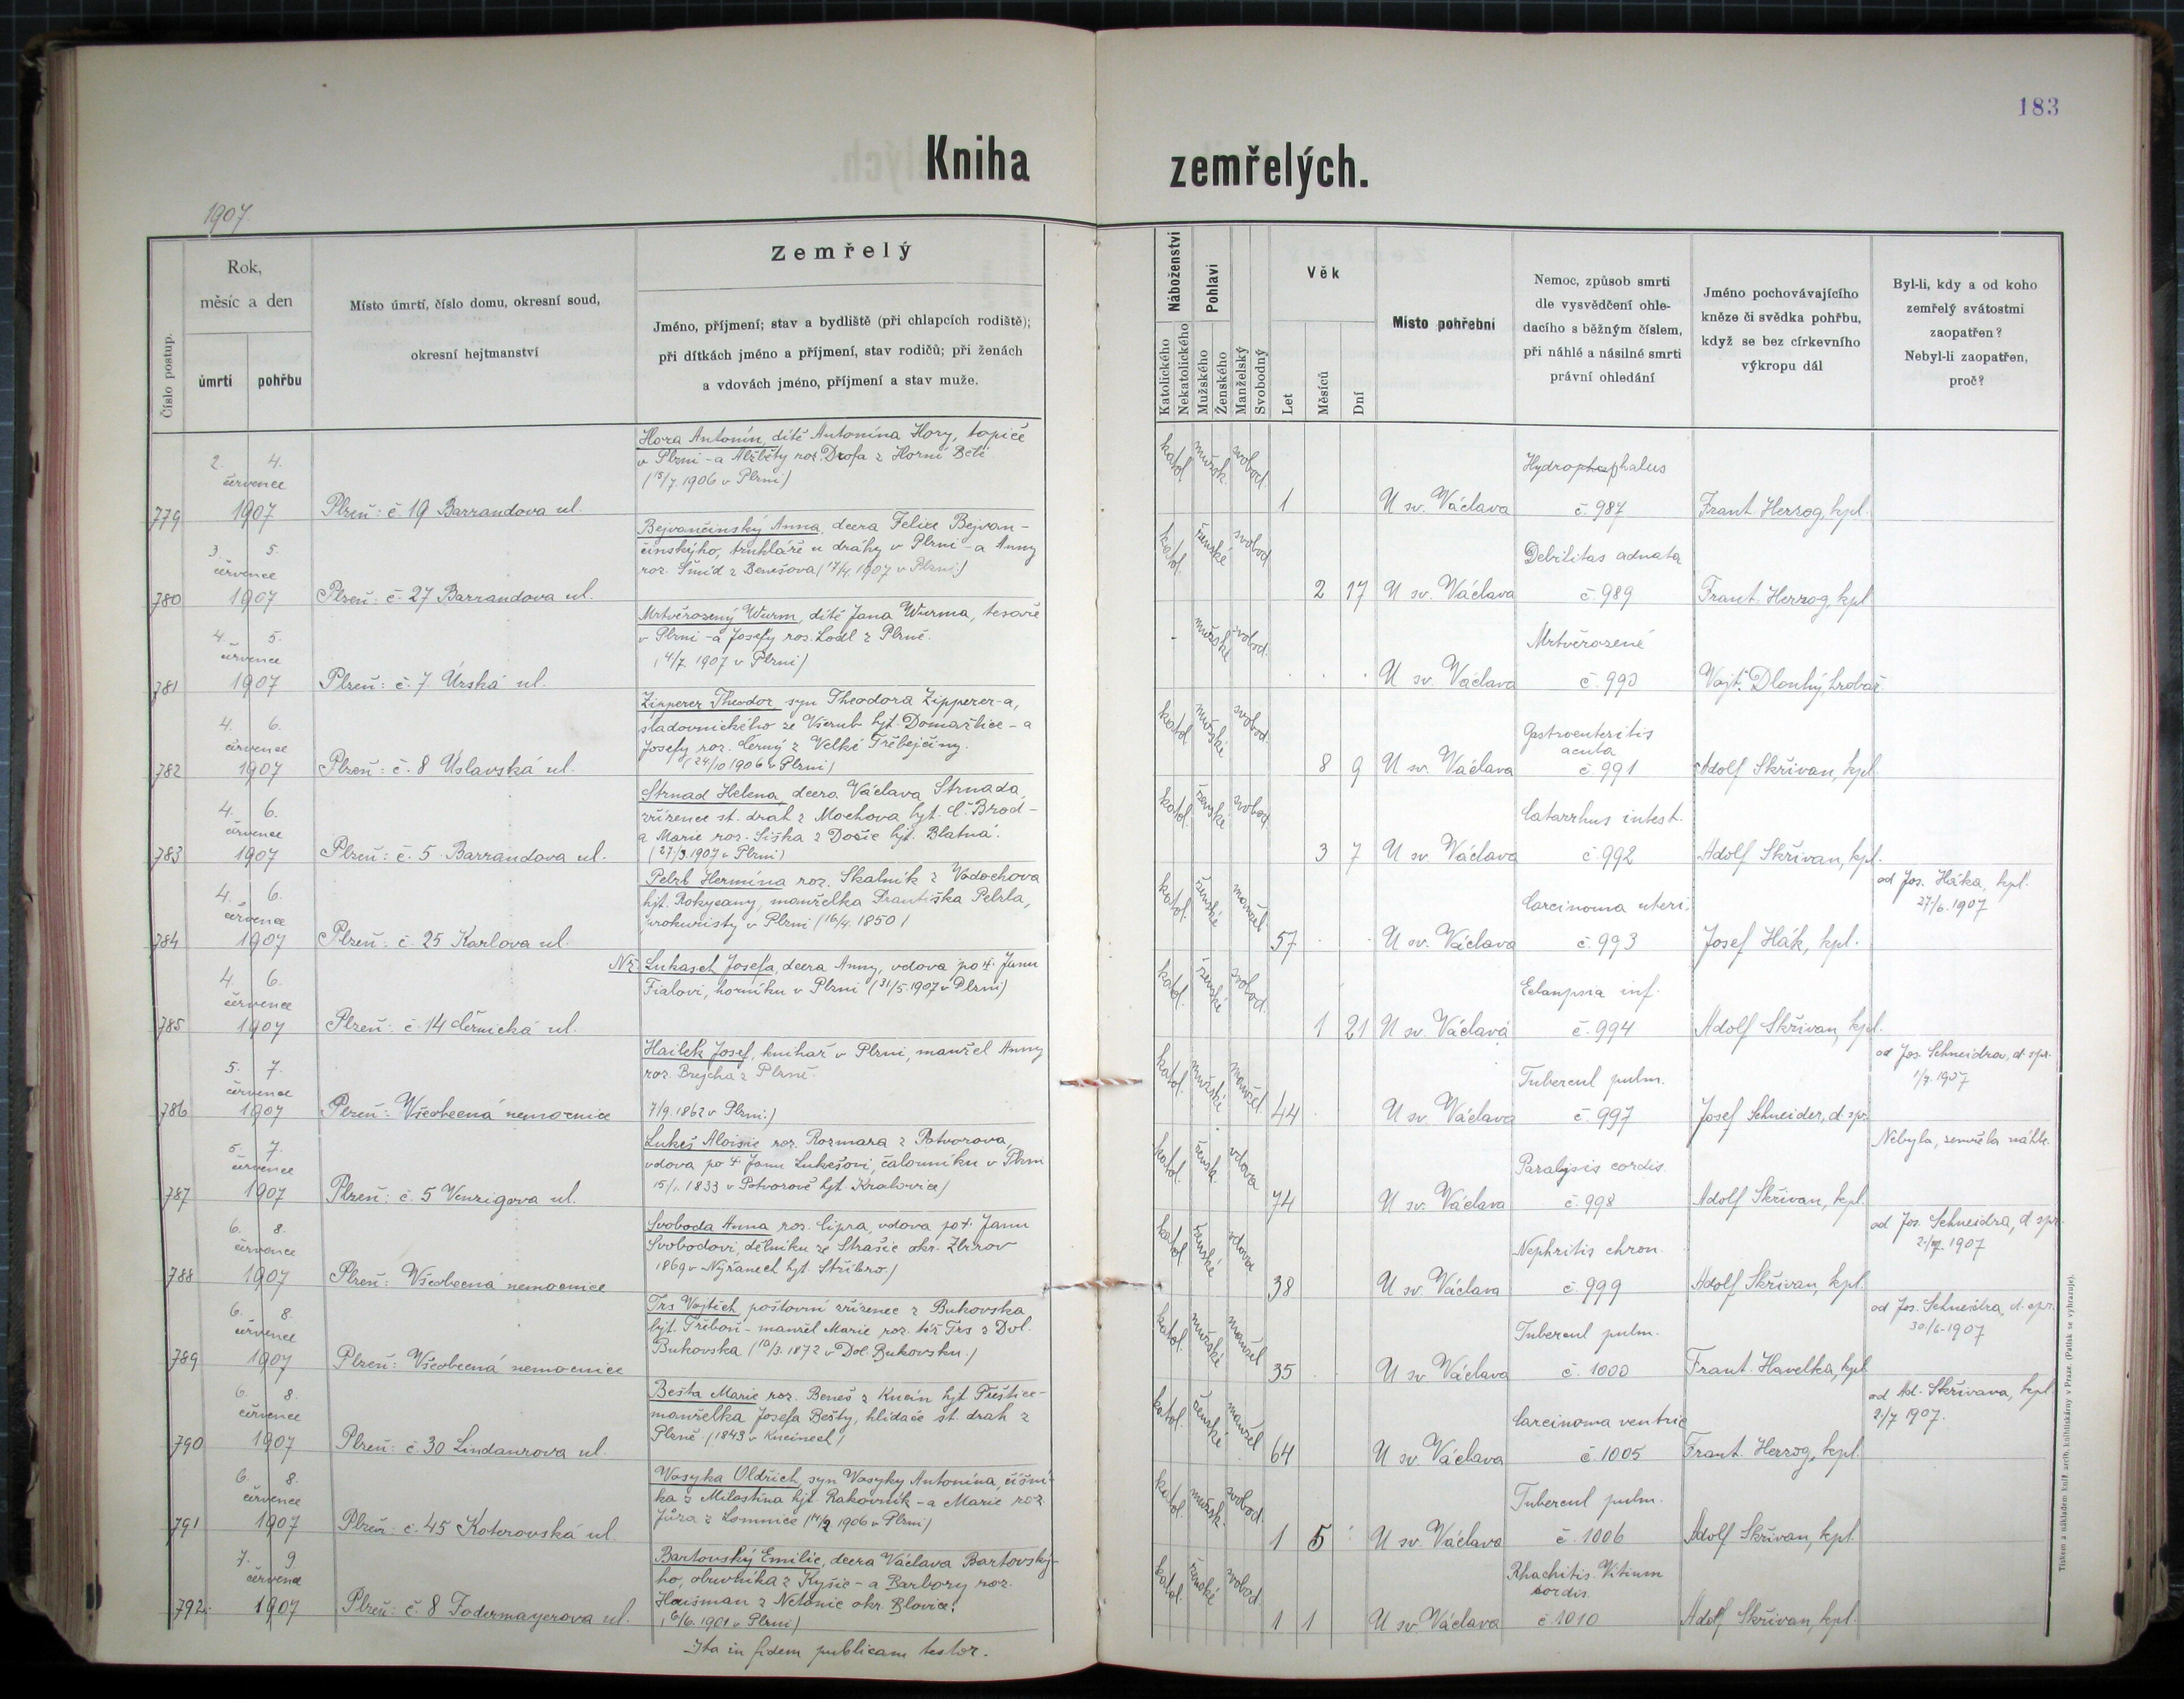 183
Kniha zemřelých.
1907.
Číslo postup.
Rok,
měsíc a den
úmrtí
pohřbu
Místo úmrtí, číslo domu, okresní soud,
okresní hejtmanství
Zemřelý
Jméno, příjmení; stav a bydliště (při chlapcích rodiště);
při dítkách jméno a příjmení, stav rodičů; při ženách
a vdovách jméno, příjmení a stav muže.
Náboženství
Katolického
Nekatolického
Pohlaví
Mužského
Ženského
Manželský
Svobodný
Věk
Let
Měsíců
Dní
Místo pohřební
Nemoc, způsob smrti
dle vysvědčení ohle-
dacího s běžným číslem,
při náhlé a násilné smrti
právní ohledání
Jméno pochovávajícího
kněze či svědka pohřbu,
když se bez církevního
výkropu dál
Byl-li, kdy a od koho
zemřelý svátostmi
zaopatřen?
Nebyl-li zaopatřen,
proč?
779
2. 4.
července
1907
Plzeň: č. 19 Barrandova ul.
Hora Antonín, dítě Antonína Hory, topiče
v Plzni - a Alžběty roz. Drofa z Horní Běté
(15/7. 1906 v Plzni)
katol. mužsk. svobod.
1
U sv. Václava
Hydrophephalus
č. 987
Frant. Herzog, kpl.
780
3. 5.
července
1907
Plzeň: č. 27 Barrandova ul.
Bejvančinský Anna, dcera Felixe Bejvan-
činskýho, truhláře u dráhy v Plzni - a Anny
roz. Šmíd z Benešova (17/4. 1907 v Plzni.)
katol. ženské svobod.
2 17
U sv. Václava
Debilitas adnata
č. 989
Frant. Herzog, kpl.
781
4. 5.
července
1907
Plzeň: č. 7 Úzská ul.
Mrtvěrozený Wurm, dítě Jana Wurma, tesaře
v Plzni - a Josefy roz. Lodl z Plzně.
(4/7. 1907 v Plzni)
- mužské svobod.
U sv. Václava
Mrtvěrozené
č. 990
Vojt. Dlouhý hrobař
782
4. 6.
července
1907
Plzeň: č. 8 Úslavská ul.
Zipperer Theodor syn Theodora Zipperer-a,
sladovnického ze Všerub hjt. Domažlice - a
Josefy roz. Černý z Velké Třebejčiny.
(24/10 1906 v Plzni)
katol. mužské svobod.
8 9
U sv. Václava
Gastroenteritis
acuta
č. 991
Adolf Skřivan, kpl.
783
4. 6.
července
1907
Plzeň: č. 5 Barrandova ul.
Strnad Helena, dcera Václava Strnada,
zřízence st. drah z Mochova hjt. Č. Brod -
a Marie roz. Šiška z Došic hjt. Blatná.
(27/3. 1907 v Plzni)
katol. ženské svobod.
3 7
U sv. Václava
Catarrhus intest.
č. 992
Adolf Skřivan, kpl.
784
4. 6.
července
1907
Plzeň: č. 25 Karlova ul.
Pelzl Hermína roz. Skalník z Vodochova
hjt. Rokycany, manželka Františka Pelzla,
prokuristy v Plzni (16/4. 1850)
katol. ženské manžel.
57
U sv. Václava
Carcinoma uteri.
č. 993
Josef Hák, kpl.
od Jos. Háka, kpl.
27/6. 1907
785
4. 6.
července
1907
Plzeň: č. 14 Černická ul.
Nž. Lukasch Josefa, dcera Anny, vdova po † Janu
Fialovi, horníku v Plzni (31/5. 1907 v Plzni)
katol. ženské svobod.
1 21
U sv. Václava
Eclampsia inf.
č. 994
Adolf Skřivan, kpl.
786
5. 7.
července
1907
Plzeň: Všeobecná nemocnice
Hailek Josef, knihař v Plzni, manžel Anny
roz. Brejcha z Plzně.
7/9. 1862 v Plzni.)
katol. mužské manžel.
44
U sv. Václava
Tubercul pulm.
č. 997
Josef Schneider, d. spr.
od Jos. Schneidra, d. spr.
1/7. 1907
787
5. 7.
července
1907
Plzeň: č. 5 Venzigova ul.
Lukeš Aloisie roz. Rozmara z Potvorova,
vdova po † Janu Lukešovi, čalouníku v Plzni
15/1. 1833 v Potvorově hjt. Kralovice)
katol. žensk. vdova
74
U sv. Václava
Paralysis cordis
č. 998
Adolf Skřivan, kpl.
Nebyla, zemřela náhle.
788
6. 8.
července
1907
Plzeň: Všeobecná nemocnice
Svoboda Anna roz. Cipra, vdova po †. Janu
Svobodovi, dělníku ze Strašic okr. Zbirov
1869 v Nýřanech hjt. Stříbro.)
katol. ženské vdova
38
U sv. Václava
Nephritis chron.
č. 999
Adolf Skřivan, kpl.
od Jos. Schneidra, d. spr.
2/7. 1907
789
6. 8.
července
1907
Plzeň: Všeobecná nemocnice
Trs Vojtěch poštovní zřízenec z Bukovska
hjt. Třeboň - manžel Marie roz. též Trs z Dol.
Bukovska (10/3. 1872 v Dol. Bukovsku.)
katol. mužské manžel
35
U sv. Václava
Tubercul pulm.
č. 1000
Frant. Havelka, kpl.
od Jos. Schneidra, d. spr.
30/6. 1907
790
6. 8.
července
1907
Plzeň: č. 30 Lindaurova ul.
Bešta Marie roz. Beneš z Kucín hjt. Přeštice -
manželka Josefa Bešty, hlídače st. drah z
Plzně. (1843 v Kucínech)
katol. ženské manžel
64
U sv. Václava
Carcinoma ventric
č. 1005
Frant. Herzog, kpl.
od Ad. Skřivana, kpl.
2/7 1907.
791
6. 8.
července
1907
Plzeň: č. 45 Koterovská ul.
Wasyka Oldřich, syn Wasyky Antonína, číšní-
ka z Milostína hjt. Rakovník - a Marie roz.
Jůza z Lomnice (14/2 1906 v Plzni)
katol. mužsk. svobod.
1 5
U sv. Václava
Tubercul pulm.
č. 1006
Adolf Skřivan, kpl.
792.
7. 9
července
1907
Plzeň: č. 8 Fodermayerova ul.
Bartovský Emilie, dcera Václava Bartovský-
ho, obuvníka z Kyšic - a Barbory roz.
Hausman z Netonic okr. Blovice.
(6/6. 1901 v Plzni)
katol. ženské svobod.
1 1
U sv. Václava
Rhachitis. Vitium
cordis.
č. 1010
Adolf Skřivan, kpl.
Ita in fidem publicam testor.
Tiskem a nákladem kníž. arcib. knihtiskárny v Praze. (Patisk se vyhrazuje).